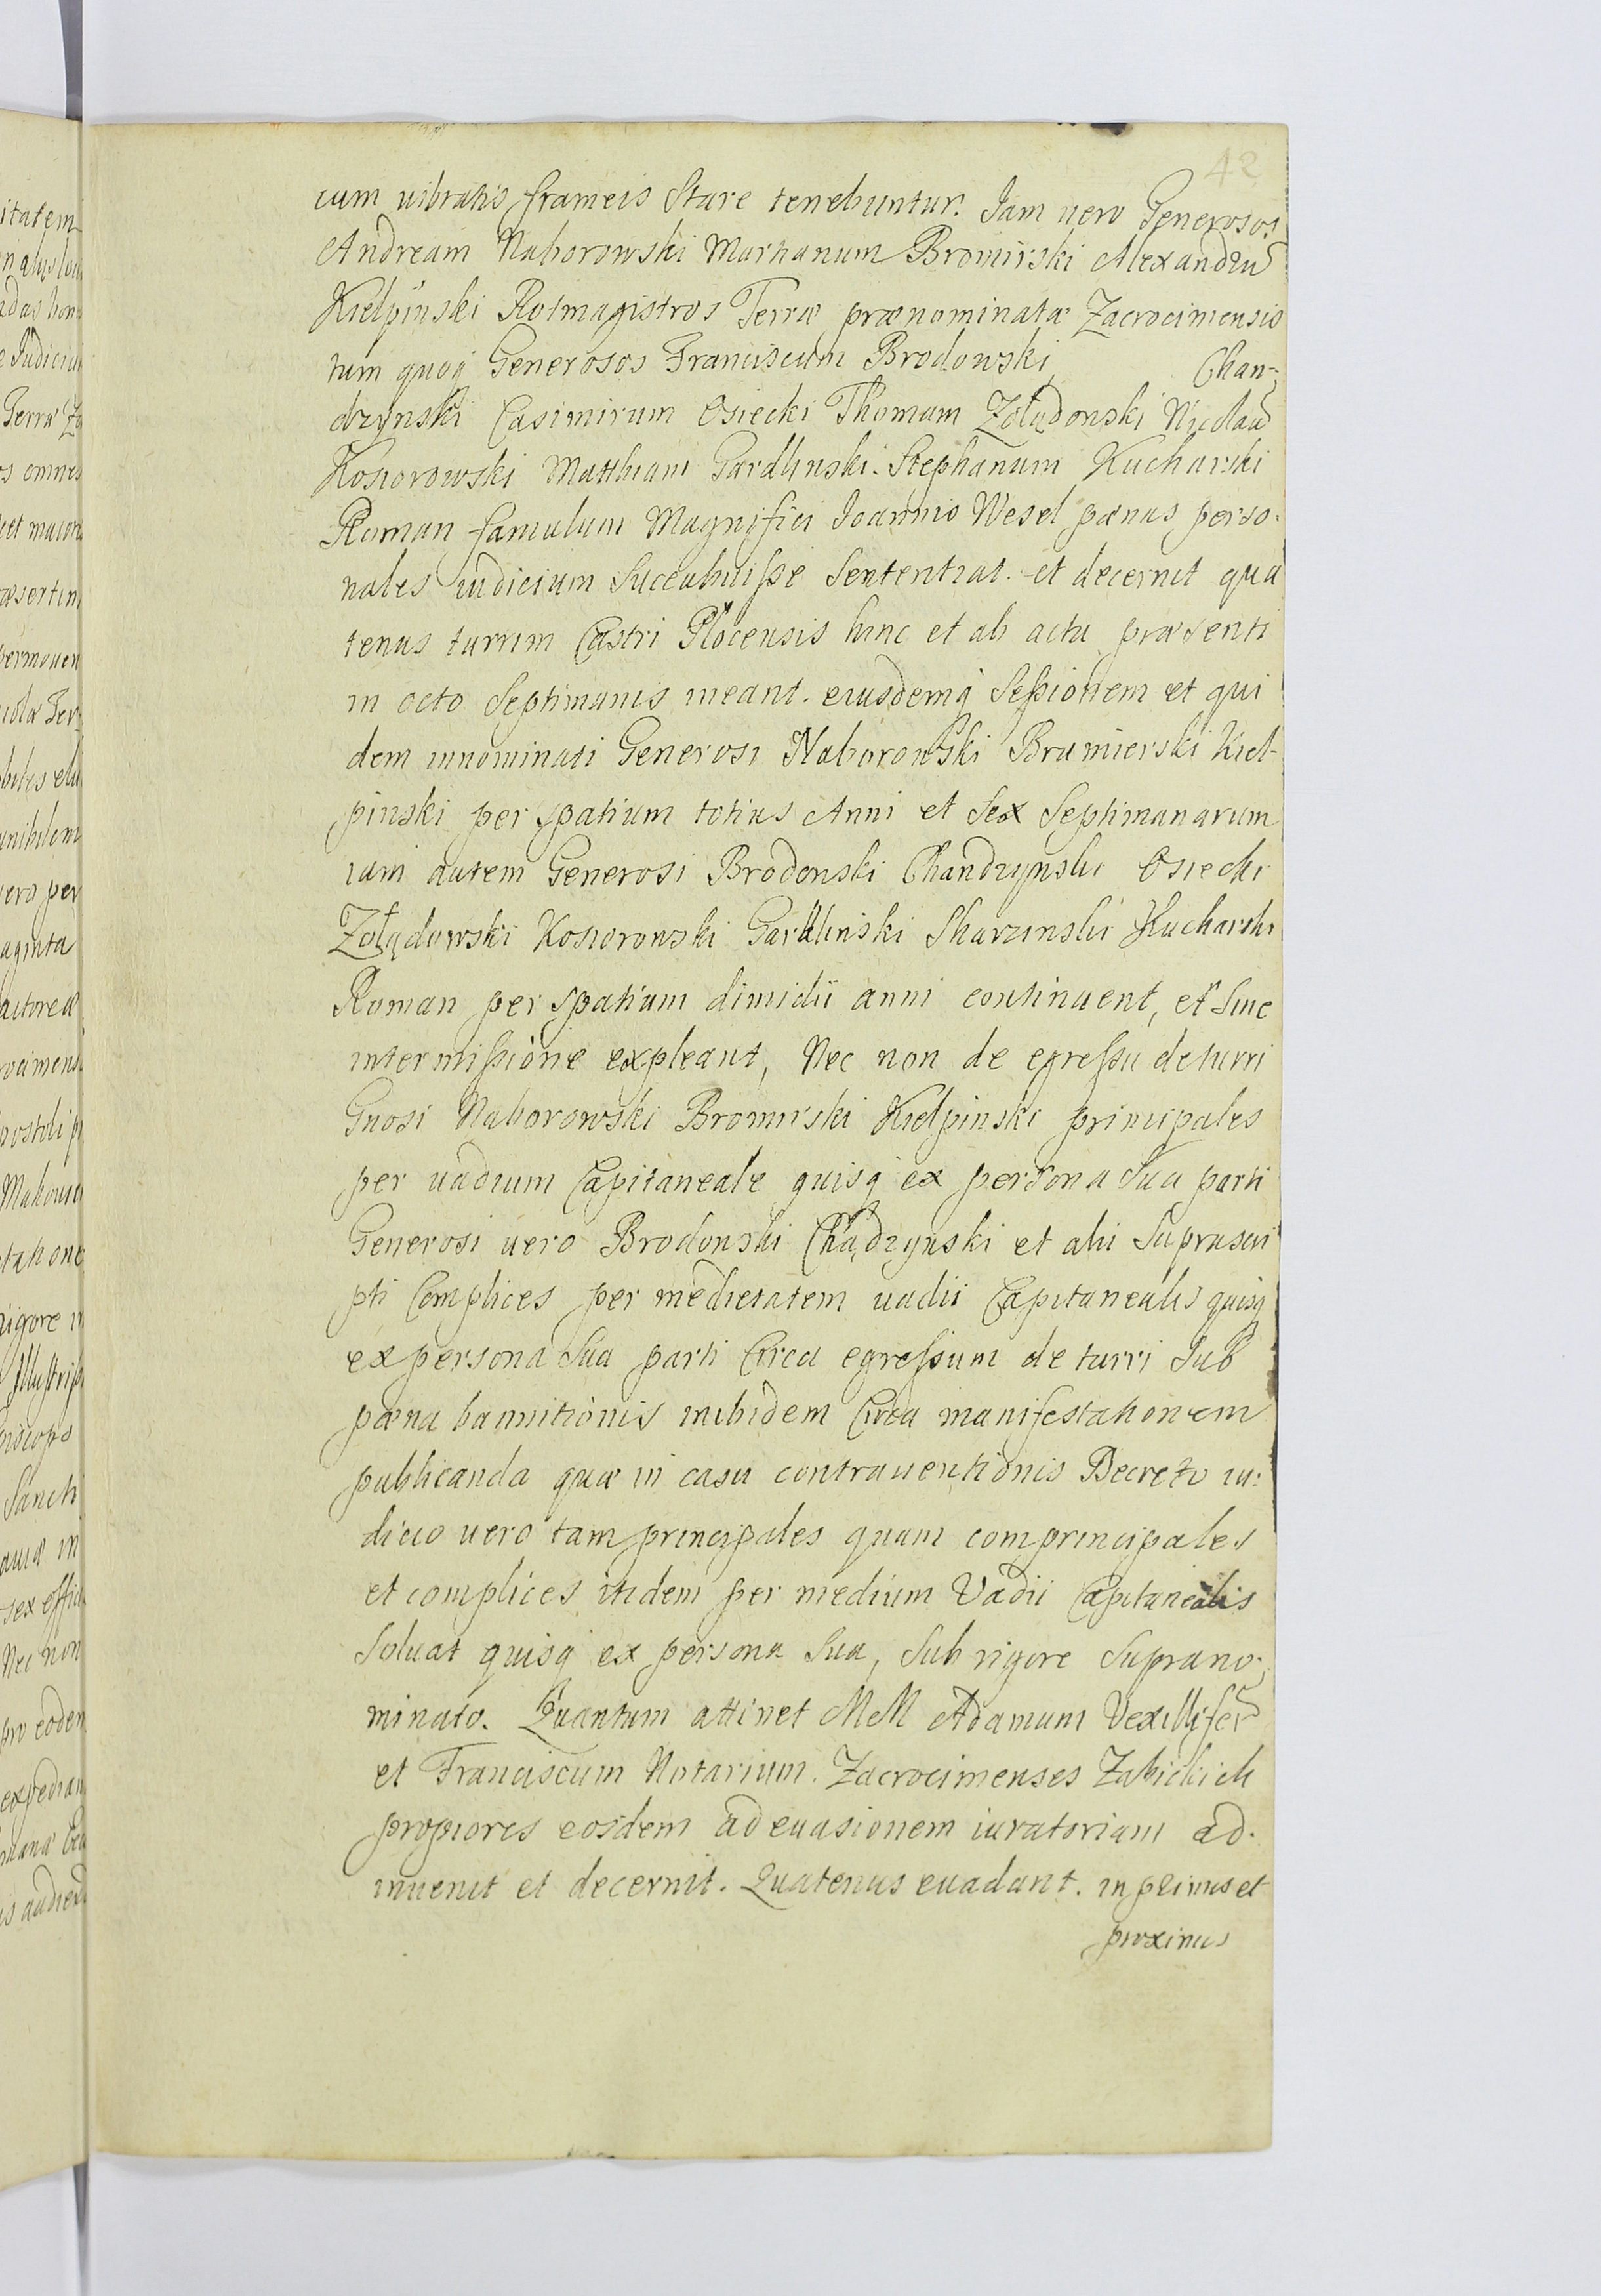 42
cum uibratis frameis Stare tenebuntur. Iam uero Generosos
Andream Naborowski Martianum Bromirski Alexandru
Kiełpinski Rotmagistros Terræ prænominatæ Zacrocimensis
tum quoq Generosos Franciscum Brodowski Chan-
drzynski Casimirum Osiecki Thomam Zołądowski Nicolau
Kosiorowski Matthiam Gardlinski. Stephanum Kucharski
Roman famulum Magnifici Joannis Wesel pænas perso-
nales iudicium Succubuisse Sententiat. et decernit qua
tenus turrim Castri Plocensis hinc et ab actu præsenti
in octo Septimanis ineant. eiusdemq Sessionem et qui
dem innominati Generosi Naborowski Bramierski Kieł-
pinski per spatium totius Anni et Sex Septimanarum
iam autem Generosi Brodowski Chandzynski Osiecki
Zołądowski Kosiorowski Gardlinski Skarzinski Kucharski
Roman per spatium dimidii anni continuent, et Sine
intermissione expleant, Nec non de egressu de turri
Gnosi Naborowski Bromirski Kiełpinski principales
per uadium Capitaneale quisq ex persona Sua parti
Generosi uero Brodowski Chądzynski et alii Suprascri
pti Complices per medietatem uadii Capitanealis quisq
ex persona Sua parti Circa egressum de turri Sub
pæna bannitionis inibidem Circa manifestationem
publicanda quæ in casu contrauentionis Decreto iu-
dicio uero tam principales quam comprincipales
et complices itidem per medium Vadii Capitanealis
Soluat quisq ex persona Sua, Sub rigore Suprano-
minato. Quantum attinet MM Adamum Vexilliferu
et Franciscum Notarium. Zacrocimenses Zabickich
propiores eosdem ad euasionem iuratoriam ad-
inuenit et decernit. Quatenus euadant. in primis et
proximis